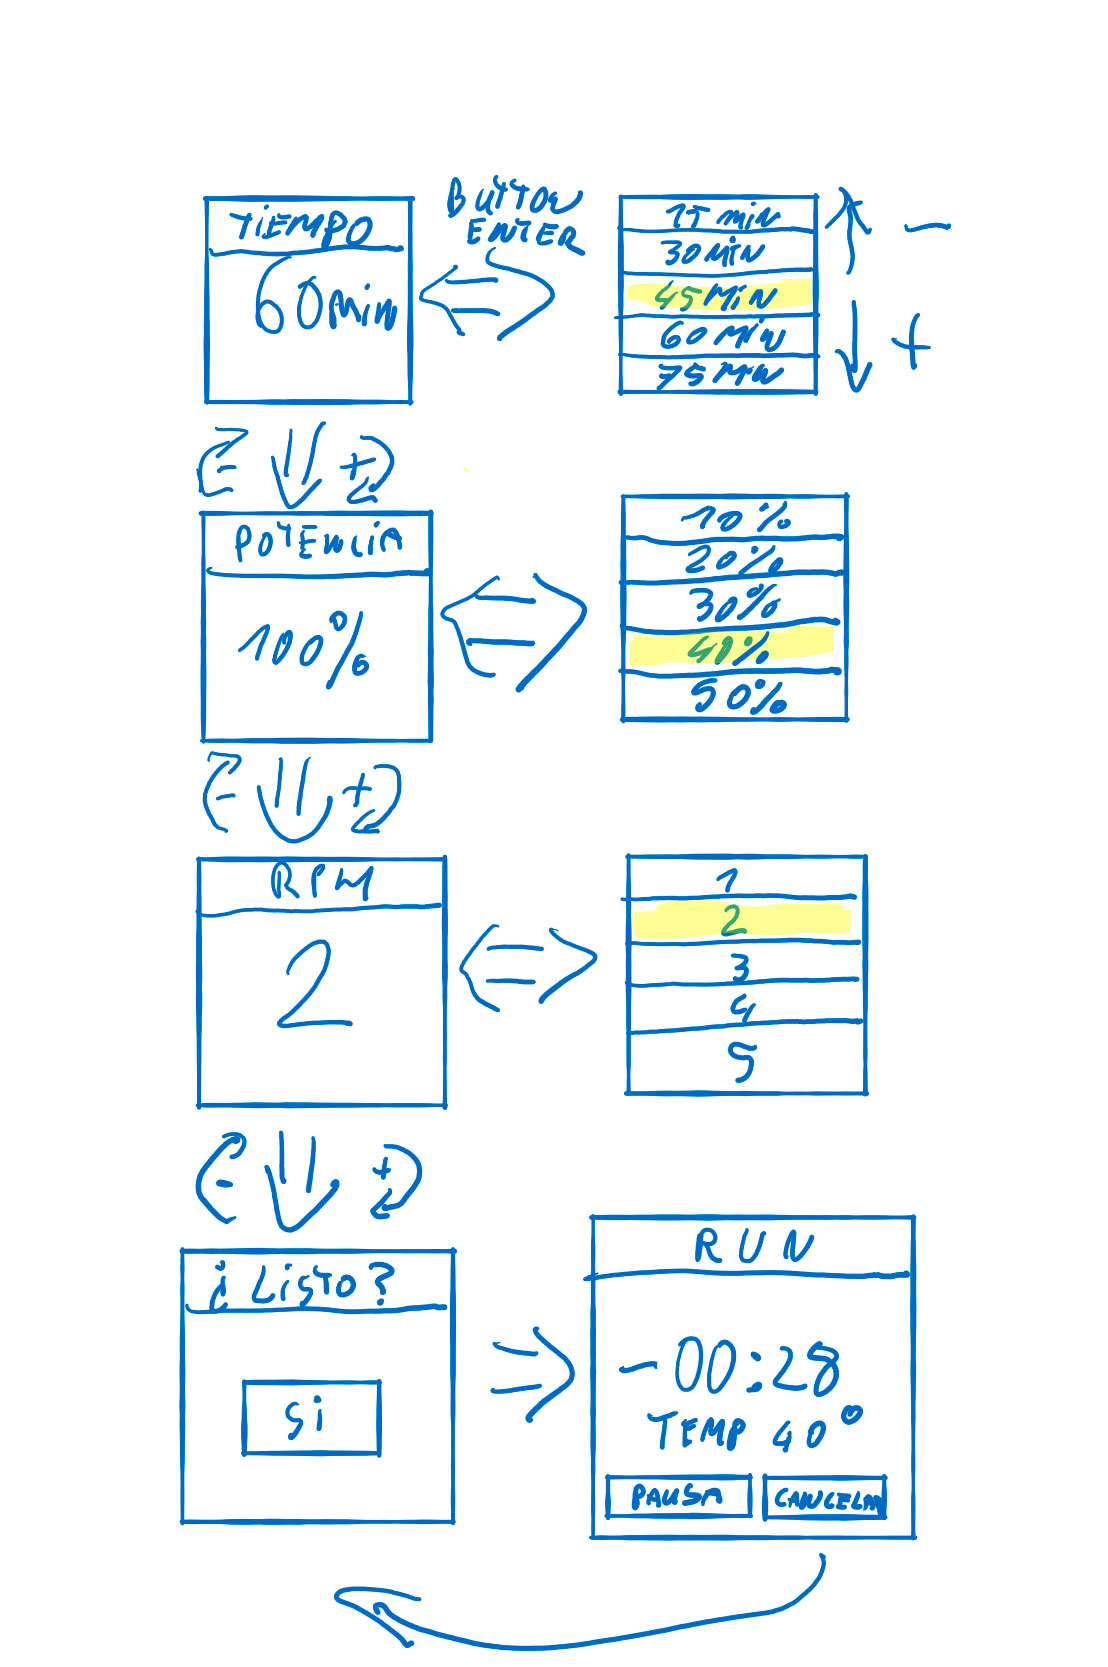 TIEMPO
60 min
BUTTON
ENTER
15 min
30 MIN
45 MIN
60 MIN
75 MIN
-
+
- +
POTENCIA
100%
10%
20%
30%
40%
50%
- +
RPM
2
1
2
3
4
5
- +
¿LISTO?
Si
RUN
-00:28
TEMP 40°
PAUSA CANCELAR